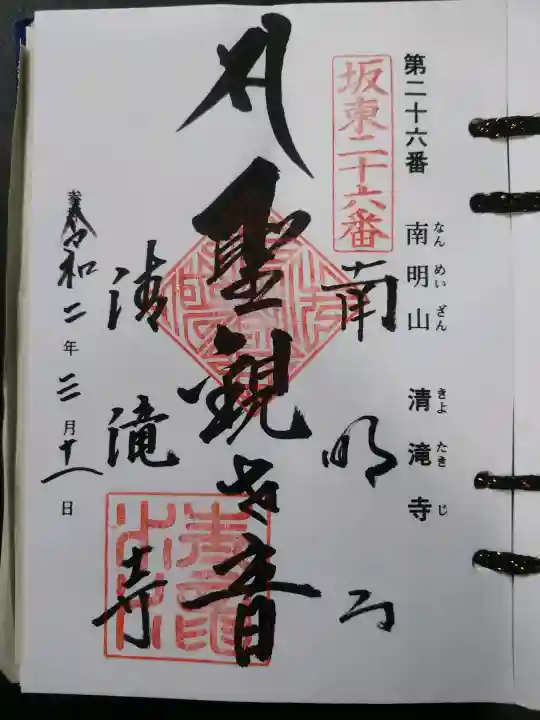 第二十六番 南明山 清滝寺
なん めい ざん きよ たき じ
坂東二十六番
南明山
聖観世音
清滝寺
令和二年三月十一日